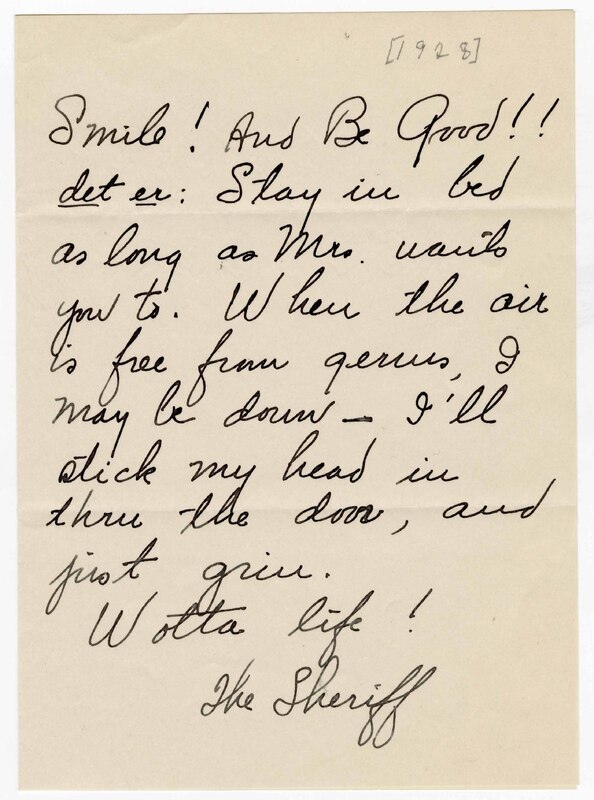 [1928]
Smile! And Be Good!!
det er: Stay in bed
as long as Mrs. wants
you to. When the air
is free from germs, I
may be down — I'll
stick my head in
thru the door, and
just grin.
Wotta life!
The Sheriff